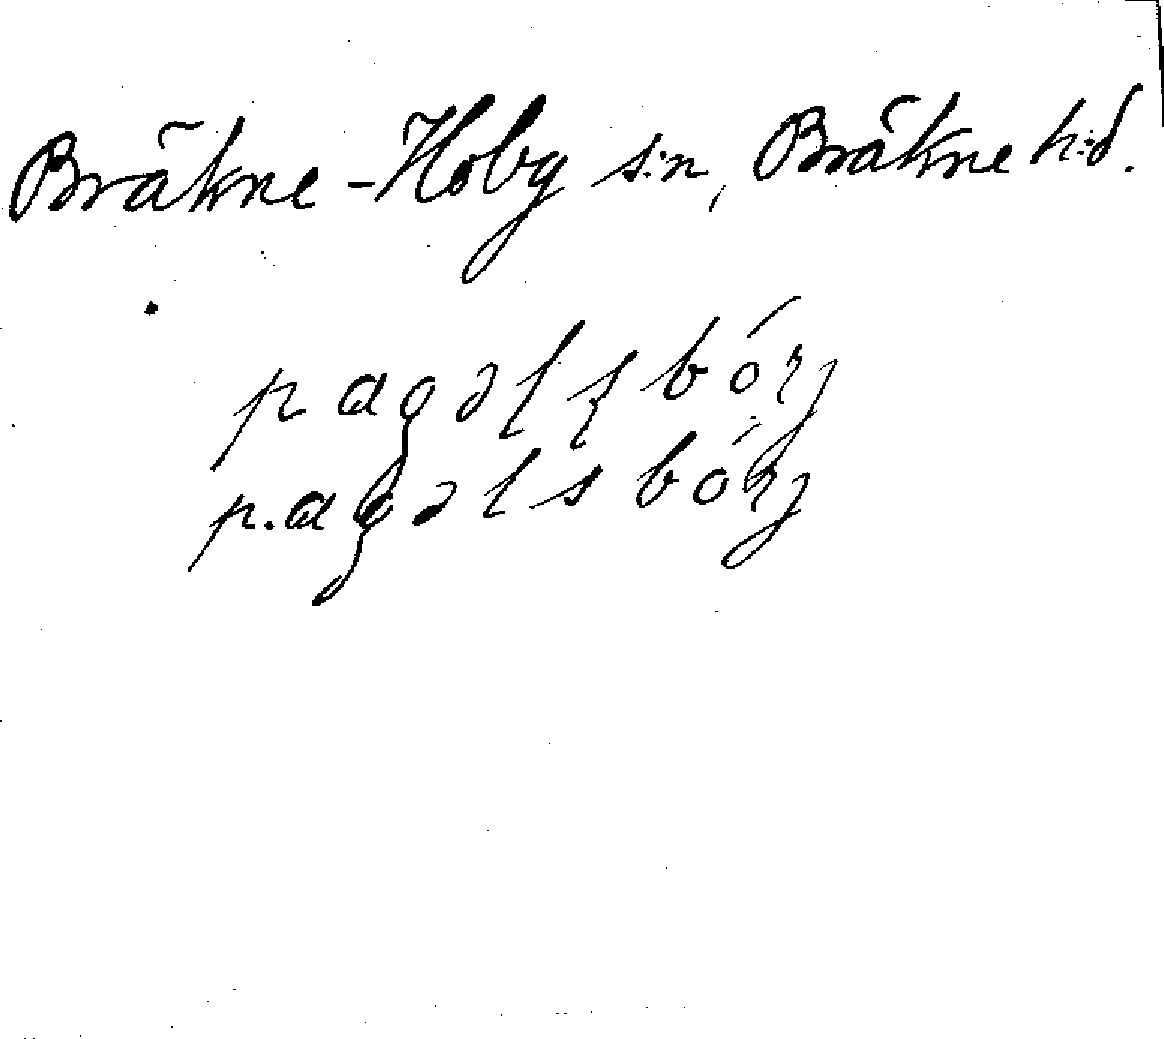 Bräkne-Hoby s:n, Bräkne h:d.
pagəlsbórj
p.agəlsbórj